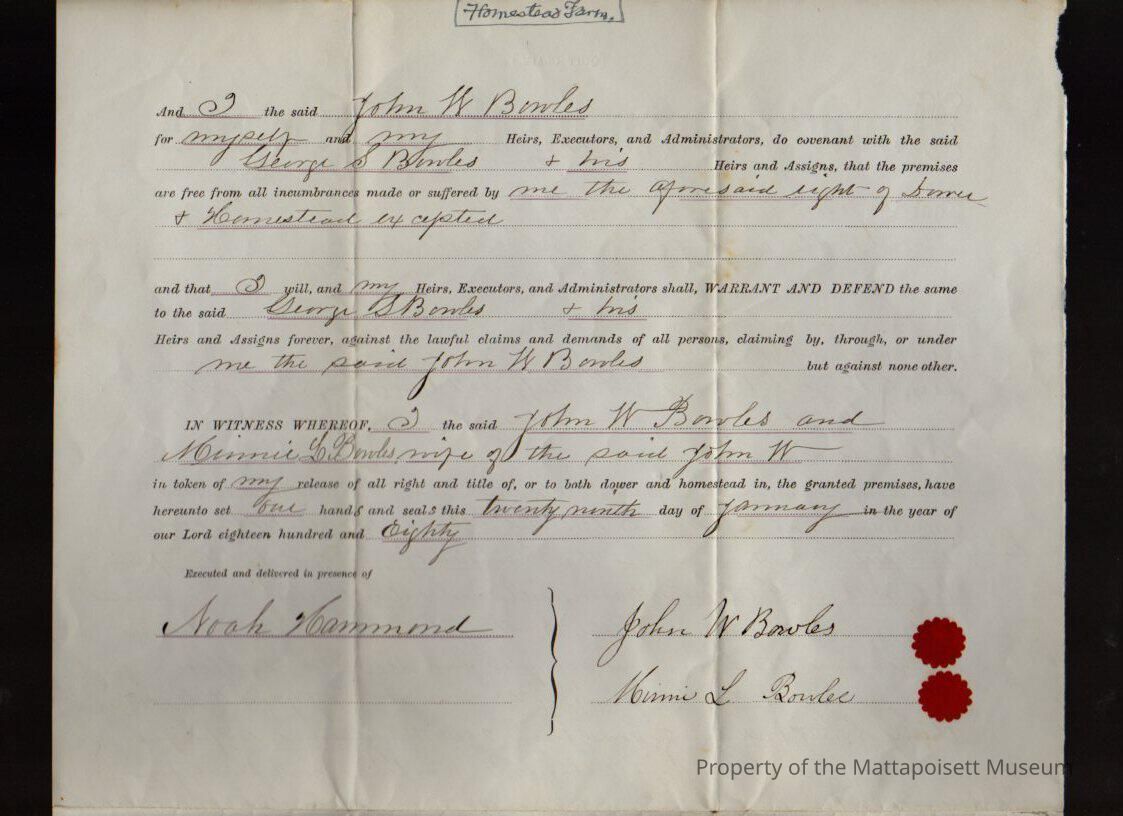 Homestead Farm.
And I the said John W Bowles
for myself and my Heirs, Executors, and Administrators, do covenant with the said
George S Bowles & his Heirs and Assigns, that the premises
are free from all incumbrances made or suffered by me the aforesaid right of Dower
& Homestead excepted
and that I will, and my Heirs, Executors, and Administrators shall, WARRANT AND DEFEND the same
to the said George S Bowles & his
Heirs and Assigns forever, against the lawful claims and demands of all persons, claiming by, through, or under
me the said John W Bowles but against none other.
IN WITNESS WHEREOF, I the said John W Bowles and
Minnie L Bowles wife of the said John W
in token of my release of all right and title of, or to both dower and homestead in, the granted premises, have
hereunto set our hands and seals this twenty ninth day of January in the year of
our Lord eighteen hundred and Eighty
Executed and delivered in presence of
Noah Hammond
John W Bowles
Minnie L Bowles
Property of the Mattapoisett Museum